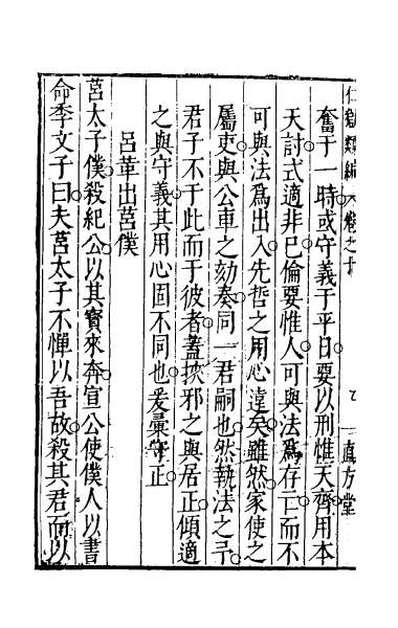 仁獄類編 卷之十 直方堂
奮于一時或守義于平日要以刑惟天齊用本
天討式適非已倫要惟人可與法為存亡而不
可與法為出入先哲之用心遠矣雖然家使之
屬吏與公車之劾奏同一君嗣也然執法之
君子不于此而于彼者蓋挾邪之與居正傾適
之與守義其用心固不同也爰彙守正
呂革出莒僕
莒太子僕殺紀公以其寳來奔宣公使僕人以書
命季文子曰夫莒太子不憚以吾故殺其君而以